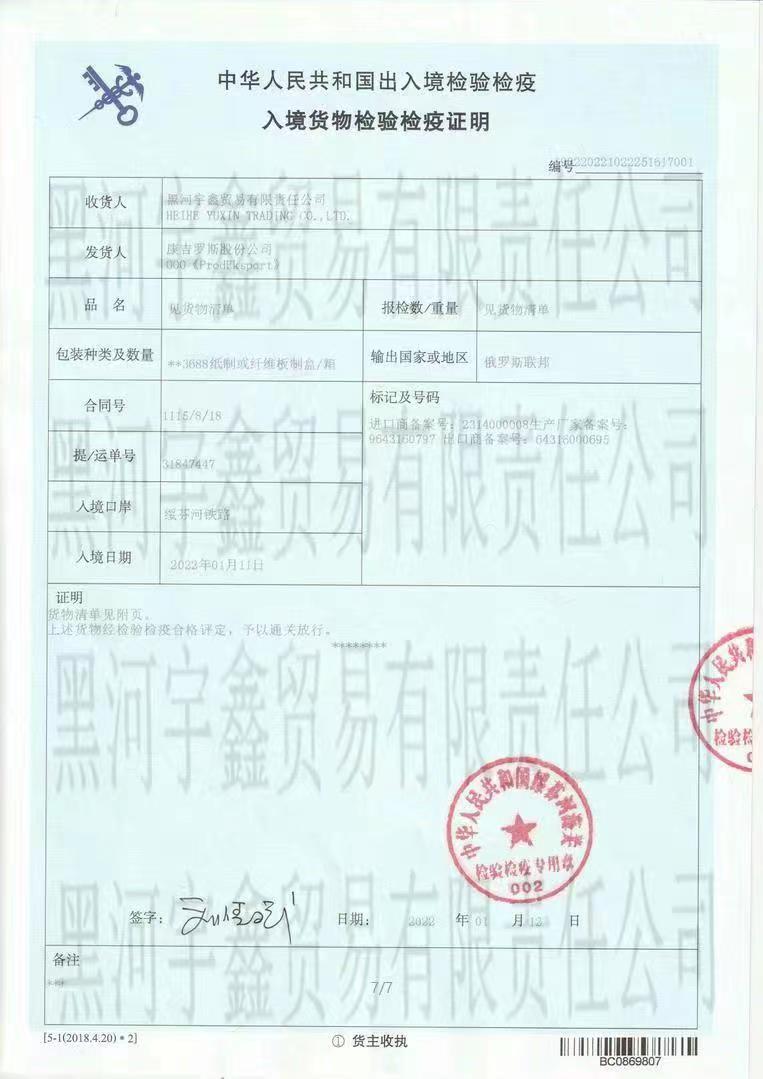 中华人民共和国出入境检验检疫
入境货物检验检疫证明
编号
收货人
黑河宇鑫贸易有限责任公司
HEIHE YUXIN TRADING CO.,LTD.
发货人
康吉罗斯股份公司
OOO《ProdEksport》
品 名 见货物清单 报检数/重量 见货物清单
包装种类及数量 **3688纸制或纤维板制盒/箱 输出国家或地区 俄罗斯联邦
合同号 1115/8/18
标记及号码
进口商备案号：2314000008生产厂家备案号：
9643160797 出口商备案号：64316000695
提/运单号 31847447
入境口岸 绥芬河铁路
入境日期 2022年01月11日
证明
货物清单见附页。
上述货物经检验检疫合格评定，予以通关放行。
********
黑河宇鑫贸易有限责任公司
黑河宇鑫贸易有限责任公司
黑河宇鑫贸易有限责任公司
黑河宇鑫贸易有限责任公司
中华人民共和国绥芬河海关
检验检疫专用章
002
中华人民
检验检
签字：
日期： 2022 年 01 月 12 日
备注
***
7/7
[5-1(2018.4.20)*2]
① 货主收执
BC0869807